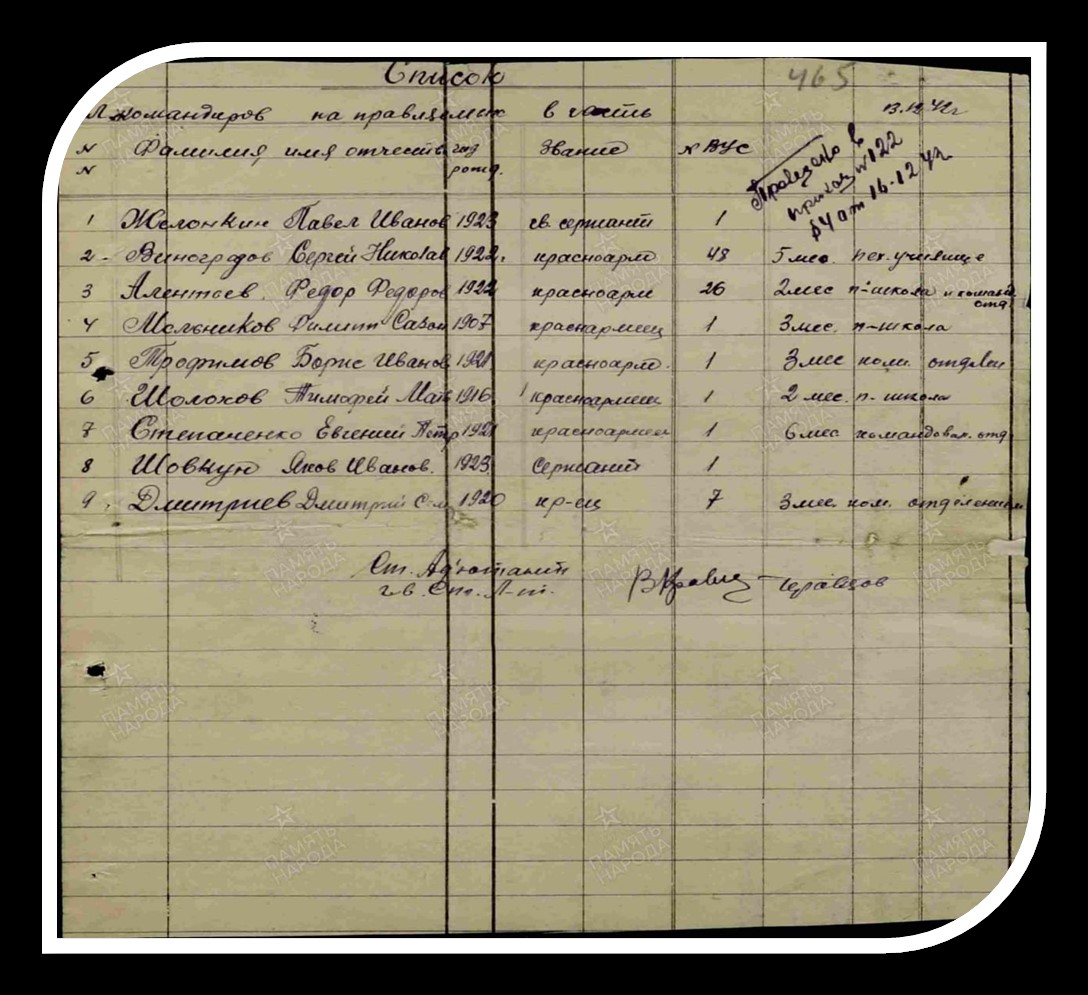 Список
465
Мл. командиров направляемых в часть
13.12.42г
N Фамилия, имя отчеств год Звание № ВУС
N рожд.
Проведено в
приказ №122
§4 от 16.12.42
1 Желонкин Павел Иванов 1923 гв. сержант 1
2 Виноградов Сергей Николае 1922. красноарм 48 5 мес. пех. училище
3 Алентьев. Федор Федоров 1922 красноарм 26 2 мес п-школа и команд
отд
4 Мельников Филипп Сазон 1907 краснармеец 1 3 мес. п-школа
5 Трофимов Борис Иванов 1921 красноарм. 1 3 мес ком. отделен
6 Шолохов Тимофей Мат 1916 красноармеец 1 2 мес. п-школа
7 Степаненко Евгений Петр 1921 красноармеец 1 6 мес командован. отд
8 Шовкун Яков Иванов. 1923 Сержант 1
9. Дмитриев Дмитрий Сем 1920 кр-ец 7 3 мес. ком. отделением
Ст. Адъютант
гв. Ст. Л-нт. Кравцов
ПАМЯТЬ НАРОДА